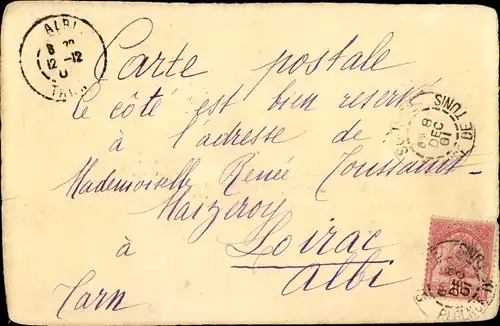 ALBI
12 -12
TARN
Carte postale
ce côté est bien reservé
à l'adresse de
Mademoiselle Renée Toussaint-
Maizeroy
à Loirac
Albi
Tarn
8
DEC
01
DE TUNIS